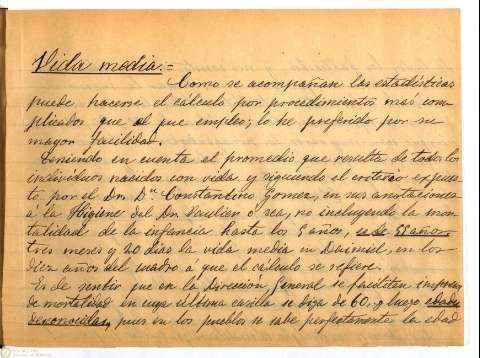 Vida media.=
Como se acompañan las estadísticas
puede hacerse el cálculo por procedimientos mas com-
plicados que el que empleo; lo he preferido por su
mayor facilidad.
Teniendo en cuenta el promedio que resulta de todos los
individuos nacidos con vida y siguiendo el criterio expues-
to por el Dr. Dn. Constantino Gomez, en sus anotaciones
á la Higiene del Dr. ó sea, no incluyendo la mor-
talidad de la infancia hasta los 5 años, es de 58 años
tres meses y 20 dias la vida media en Daimiel, en los
diez años del cuadro á que el cálculo se refiere.
Es de sentir que en la Direccion General se facilitan impresos
de mortalidad en cuya ultima casilla se diga de 60, y luego edades
desconocidas, pues en los pueblos se sabe perfectamente la edad